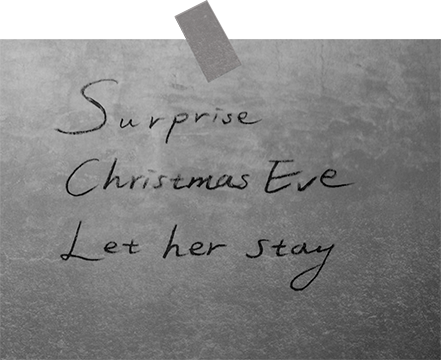 Surprise
Christmas Eve
Let her stay